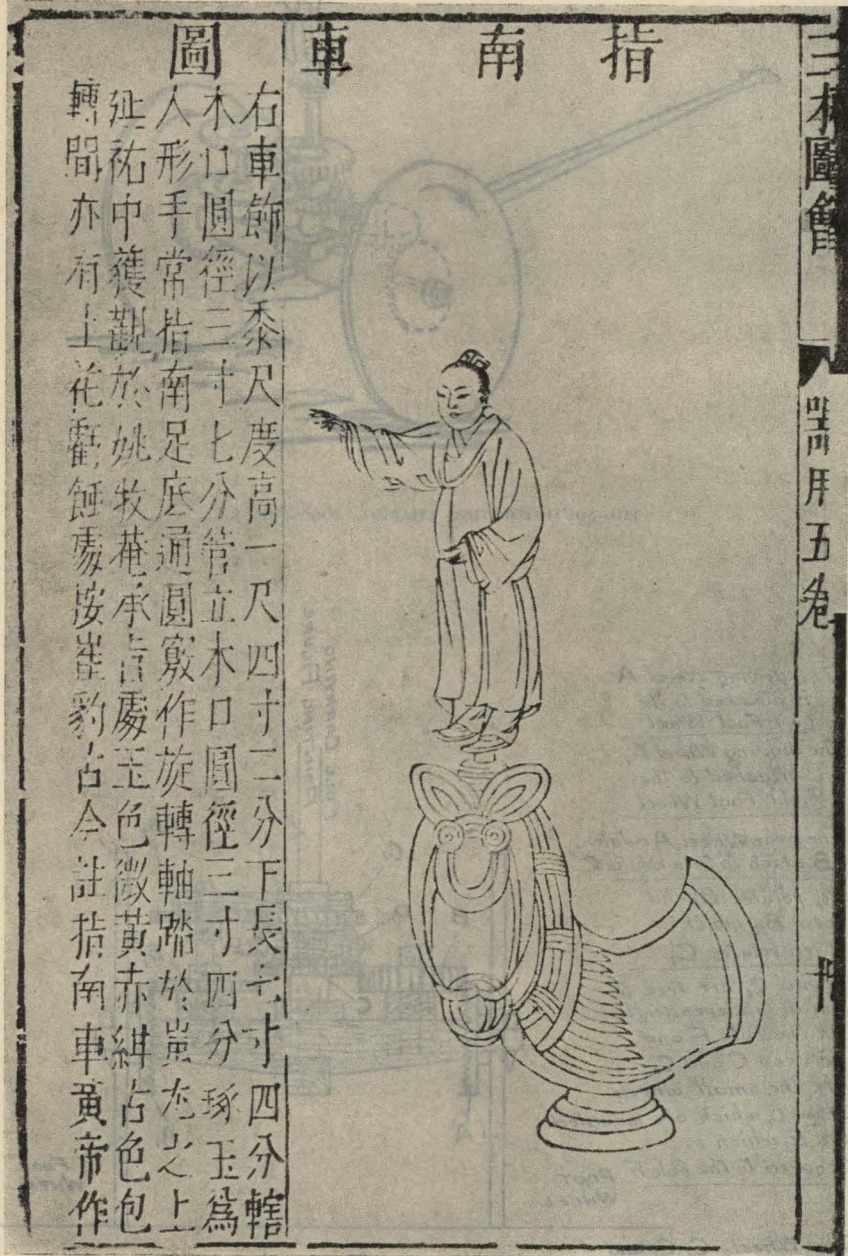 三才圖會
器用五卷
指南車圖
右車飾以黍尺度高一尺四寸二分下長七寸四分轄
木口圓徑三寸七分管立木口圓徑三寸四分琢玉爲
人形手常指南足底通圓竅作旋轉軸踏於蚩尤之上
延祐中獲觀於姚牧菴承旨處玉色微黃赤紺古色包
轉間亦有土花虧蝕處按崔豹古今註指南車黃帝作